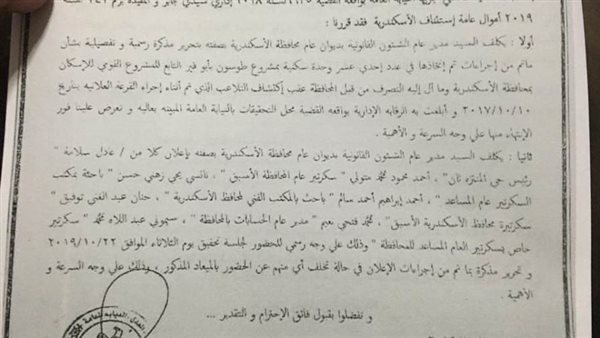 ٢٠١٩ أموال عامة إستئناف الأسكندرية فقد قررنا :
أولا : يكلف السيد مدير عام الشئون القانونية بديوان عام محافظة الأسكندرية بصفته بتحرير مذكرة رسمية و تفصيلية بشأن
ماتم من إجراءات تم إتخاذها في عدد إحدي عشر وحدة سكنية بمشروع طوسون بأبو قير التابع للمشروع القومي للإسكان
بمحافظة الأسكندرية وما آل إليه التصرف من قبل المحافظة عقب إكتشاف التلاعب الذي تم أثناء إجراء القرعة العلانيه بتاريخ
٢٠١٧/١٠/١٠ و أبلغت به الرقابه الإدارية بواقعه القضية محل التحقيقات بالنيابة العامة المبينه بعاليه و تعرض علينا فور
الإنتهاء منها علي وجه السرعة و الأهمية .
ثانيا : يكلف السيد مدير عام الشئون القانونية بديوان عام محافظة الأسكندرية بصفته بإعلان كلا من / عادل سلامة "
رئيس حي المنتزه ثان " ، أحمد محمود محمد متولي " سكرتير عام المحافظة الأسبق " ، نانسي يحي زهمي حسن " باحثة بمكتب
السكرتير عام المساعد " ، أحمد إبراهيم أحمد سالم " باحث بالمكتب الفني لمحافظ الأسكندرية " ، حنان عبد الغني توفيق "
سكرتيرة محافظ الأسكندرية الأسبق " ، محمد فتحي نعيم " مدير عام الحسابات بالمحافظة " ، سيموني عبد اللاه محمد " سكرتير
خاص بسكرتير العام المساعد للمحافظة " وذلك علي وجه رسمي للحضور لجلسة تحقيق يوم الثلاثاء الموافق ٢٠١٩/١٠/٢٢
و تحرير مذكرة بما تم من إجراءات الإعلان في حالة تخلف أي منهم عن الحضور بالميعاد المذكور ، وذلك علي وجه السرعة و
الأهمية .
و تفضلوا بقبول فائق الإحترام و التقدير ...